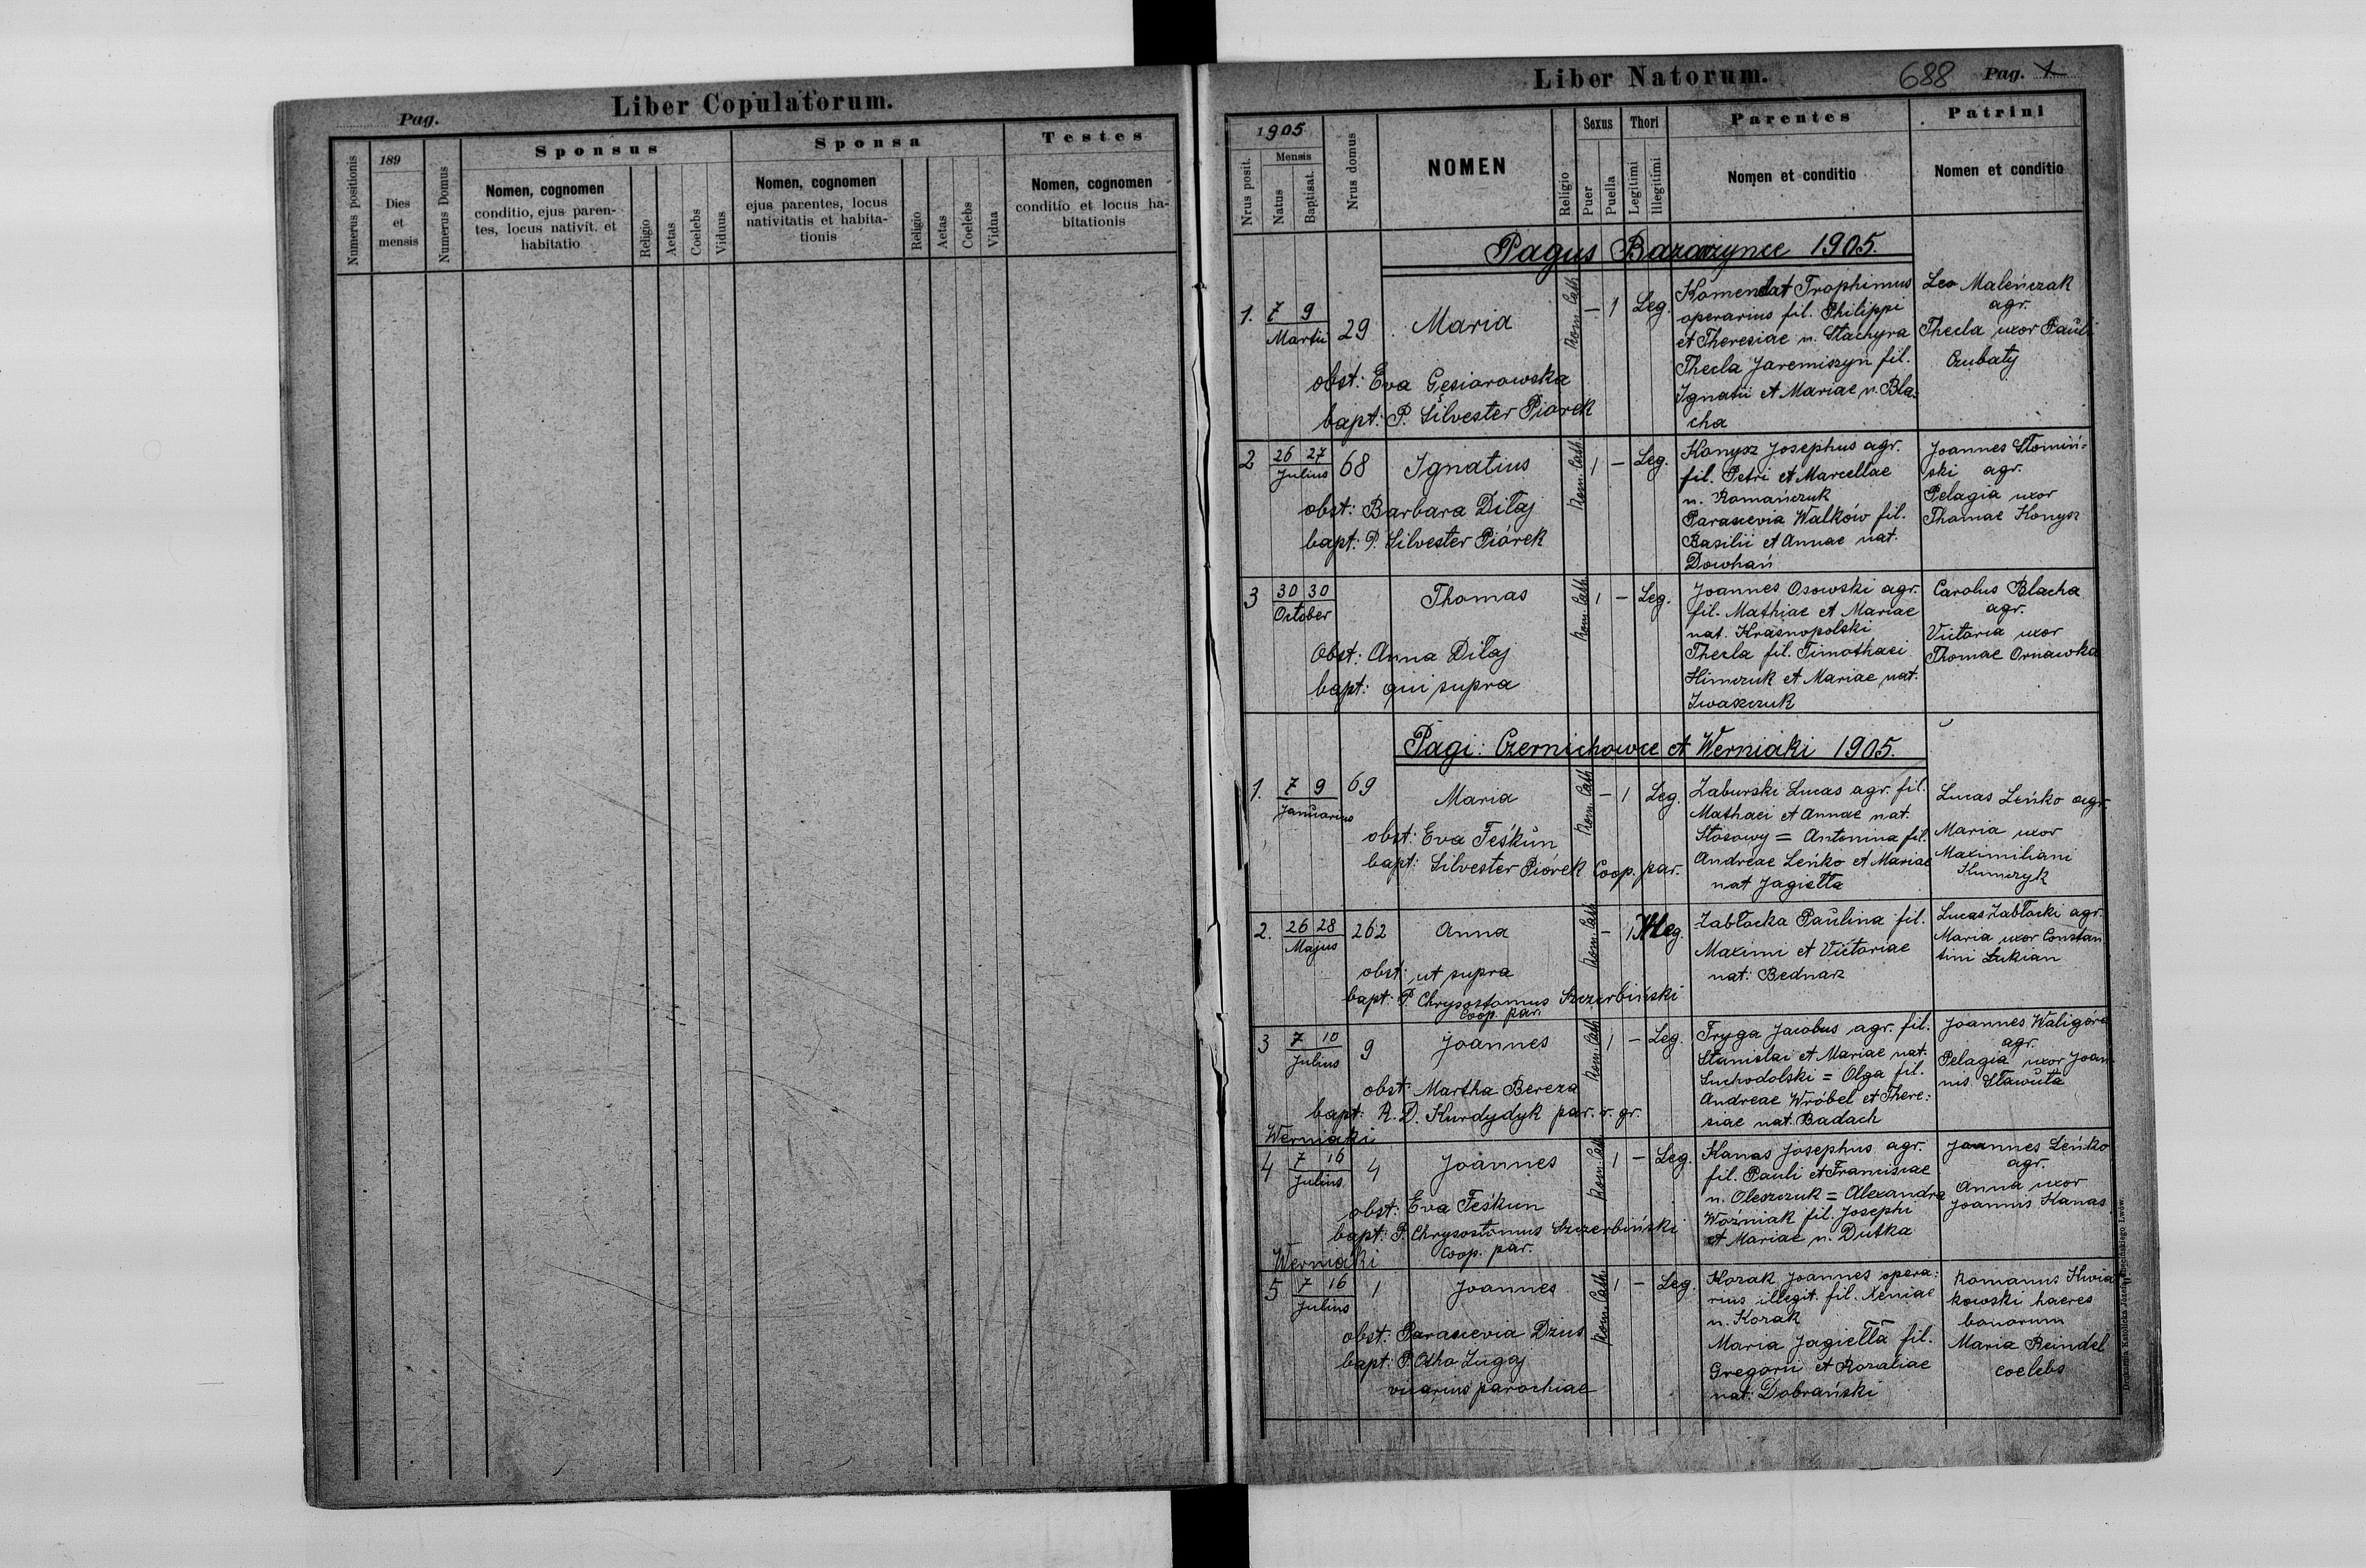 Pag.
Liber Copulatorum.
Numerus positionis
189
Dies
et
mensis
Numerus Domus
Sponsus
Nomen, cognomen
conditio, ejus paren-
tes, locus nativit. et
habitatio
Religio
Aetas
Coelebs
Viduus
Sponsa
Nomen, cognomen
ejus parentes, locus
nativitatis et habita-
tionis
Religio
Aetas
Coelebs
Vidua
Testes
Nomen, cognomen
conditio et locus ha-
bitationis
Liber Natorum.
688 Pag. 1
Nrus posit.
1905
Mensis
Natus
Baptisat.
Nrus domus
NOMEN
Religio
Sexus
Puer
Puella
Thori
Legitimi
Illegitimi
Parentes
Nomen et conditio
Patrini
Nomen et conditio
Pagus Bazarzynce 1905.
1. 7 9 Martii 29 Maria
Rom. Cath. – 1 Leg.
obst: Eva Gęsiarowska
bapt: P. Silvester Piórek
Komendat Trophimus
operarius fil. Philippi
et Theresiae n. Stachyra
Thecla Jaremiszyn fil.
Ignatii et Mariae n. Bla-
cha
Leo Maleńczak
agr.
Thecla uxor Pauli
Czubaty
2 26 27 Julius 68 Ignatius
Rom. Cath. 1 – Leg.
obst: Barbara Diłaj
bapt: P. Silvester Piórek
Konysz Josephus agr.
fil. Petri et Marcellae
n. Romańczuk
Parascevia Walków fil.
Basilii et Annae nat.
Dowhań
Joannes Słomiń-
ski agr.
Pelagia uxor
Thomae Konysz
3 30 30 October Thomas
Rom. Cath. 1 – Leg.
Obst: Anna Diłaj
bapt: qui supra
Joannes Osowski agr.
fil. Mathiae et Mariae
nat. Krasnopolski
Thecla fil. Timothaei
Klimczuk et Mariae nat.
Iwaszczuk
Carolus Blacha
agr.
Victoria uxor
Thomae Ornawka
Pagi: Czernichowce et Werniaki 1905.
1. 7 9 Januarius 69 Maria
Rom. Cath. – 1 Leg.
obst: Eva Feśkun
bapt: Silvester Piórek Coop. par.
Zaburski Lucas agr. fil.
Mathaei et Annae nat.
Stosowy = Antonina fil.
Andreae Leńko et Mariae
nat Jagiełła
Lucas Leńko agr.
Maria uxor
Maximiliani
Kumczyk
2. 26 28 Majus 262 Anna
Rom. Cath. – 1 Illeg.
obst: ut supra
bapt: P. Chrysostomus Szczerbiński
Coop. par.
Zabłocka Paulina fil.
Maximi et Victoriae
nat: Bednarz
Lucas Zabłocki agr.
Maria uxor Constan
tini Łukian
3 7 10 Julius 9 Joannes
Rom. Cath. 1 – Leg.
obst: Martha Bereza
bapt: R. D. Kurdydyk par. r. gr.
Fryga Jacobus agr. fil.
Stanislai et Mariae nat.
Suchodolski = Olga fil.
Andreae Wróbel et There:
siae nat. Badach
Joannes Waligóra
agr.
Pelagia uxor Joan-
nis Sławuta
Werniaki
4 7 16 Julius 4 Joannes
Rom. Cath. 1 – Leg.
obst: Eva Feśkun
bapt: P. Chrysostomus Szczerbiński
Coop. par.
Kanas Josephus agr.
fil. Pauli et Franciscae
n. Oleszczuk = Alexandra
Woźniak fil. Josephi
et Mariae n. Dutka
Joannes Leńko
agr.
Anna uxor
Joannis Kanas
Werniaki
5 7 16 Julius 1 Joannes
Rom. Cath. 1 – Leg.
obst: Parascevia Dzius
bapt: P. Otho Zugaj
vicarius parochiae
Kozak Joannes opera:
rius illegit. fil. Xeniae
n. Kozak
Maria Jagiełła fil.
Gregorii et Rozaliae
nat: Dobrański
Romanus Kwia
kowski haeres
bonorum
Maria Reindel
coelebs